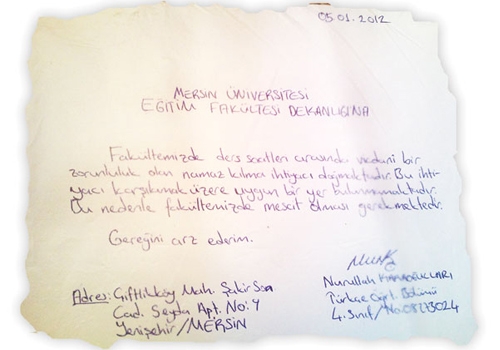 05.01.2012
MERSİN ÜNİVERSİTESİ
EĞİTİM FAKÜLTESİ DEKANLIĞINA
Fakültemizde ders saatleri arasında vicdani bir
zorunluluk olan namaz kılma ihtiyacı doğmaktadır. Bu ihti-
yacı karşılamak üzere uygun bir yer bulunmamaktadır.
Bu nedenle fakültemizde mescit olması gerekmektedir.
Gereğini arz ederim.
Nurullah
Adres: Çiftlikköy Mah. Şakir
Türkçe Öğrt. Bölümü
Cad. Seyda Apt. No: 4
4. Sınıf / No:
Yenişehir / MERSİN